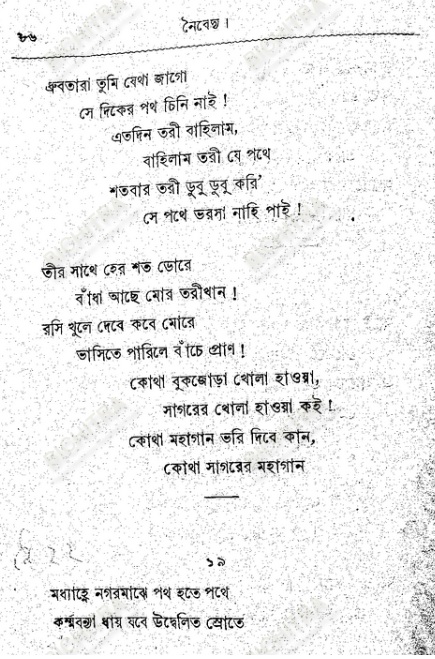 ৮৬
নৈবেদ্য।
ধ্রুবতারা তুমি যেথা জাগো
সে দিকের পথ চিনি নাই!
এতদিন তরী বাহিলাম,
বাহিলাম তরী যে পথে
শতবার তরী ডুবু ডুবু করি’
সে পথে ভরসা নাহি পাই!
তীর সাথে হের শত ডোরে
বাঁধা আছে মোর তরীখান!
রসি খুলে দেবে কবে মোরে
ভাসিতে পারিলে বাঁচে প্রাণ!
কোথা বুকজোড়া খোলা হাওয়া,
সাগরের খোলা হাওয়া কই!
কোথা মহাগান ভরি দিবে কান,
কোথা সাগরের মহাগান
১৯
মধ্যাহ্নে নগরমাঝে পথ হতে পথে
কর্ম্মবন্যা ধায় যবে উদ্বেলিত স্রোতে